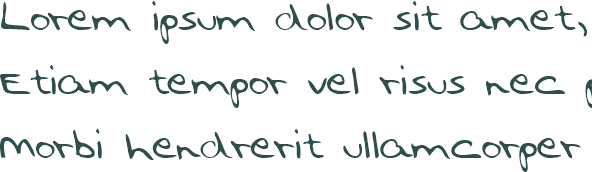 Lorem ipsum dolor sit amet,
Etiam tempor vel risus nec
morbi hendrerit ullamcorper